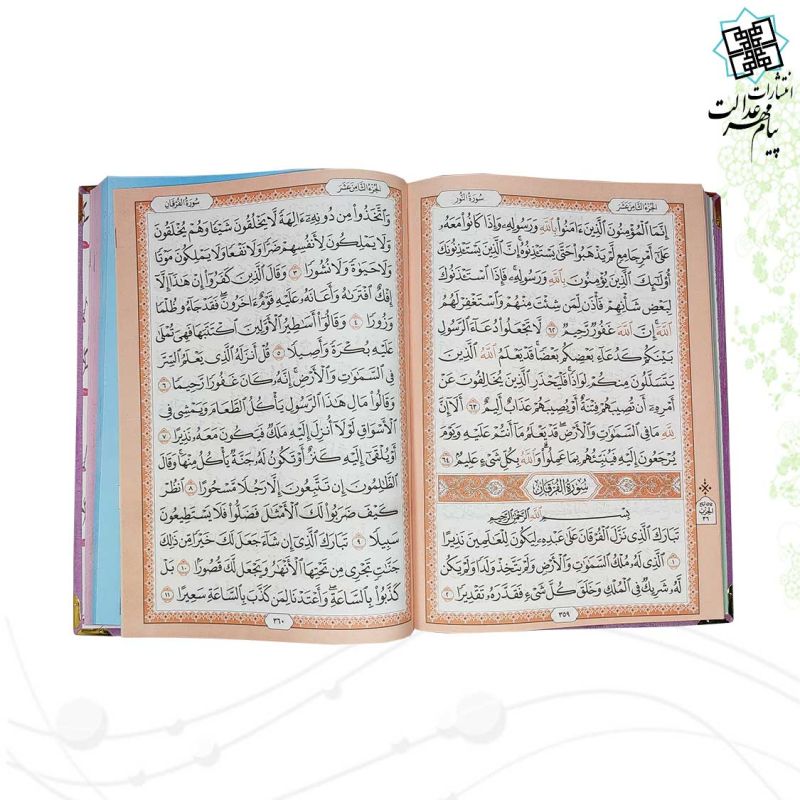 انتشارات
پیام مهر عدالت
الجزء الثامن عشر
سورة النور
إِنَّمَا الْمُؤْمِنُونَ الَّذِينَ ءَامَنُوا بِاللَّهِ وَرَسُولِهِ وَإِذَا كَانُوا مَعَهُ
عَلَىٰ أَمْرٍ جَامِعٍ لَمْ يَذْهَبُوا حَتَّىٰ يَسْتَـْٔذِنُوهُ إِنَّ الَّذِينَ يَسْتَـْٔذِنُونَكَ
أُولَـٰئِكَ الَّذِينَ يُؤْمِنُونَ بِاللَّهِ وَرَسُولِهِ فَإِذَا اسْتَـْٔذَنُوكَ
لِبَعْضِ شَأْنِهِمْ فَأْذَنْ لِمَنْ شِئْتَ مِنْهُمْ وَاسْتَغْفِرْ لَهُمُ
اللَّهَ إِنَّ اللَّهَ غَفُورٌ رَحِيمٌ ٦٢ لَا تَجْعَلُوا دُعَاءَ الرَّسُولِ
بَيْنَكُمْ كَدُعَاءِ بَعْضِكُمْ بَعْضًا قَدْ يَعْلَمُ اللَّهُ الَّذِينَ
يَتَسَلَّلُونَ مِنْكُمْ لِوَاذًا فَلْيَحْذَرِ الَّذِينَ يُخَالِفُونَ عَنْ
أَمْرِهِ أَنْ تُصِيبَهُمْ فِتْنَةٌ أَوْ يُصِيبَهُمْ عَذَابٌ أَلِيمٌ ٦٣ أَلَا إِنَّ
لِلَّهِ مَا فِي السَّمَـٰوَٰتِ وَالْأَرْضِ قَدْ يَعْلَمُ مَا أَنْتُمْ عَلَيْهِ وَيَوْمَ
يُرْجَعُونَ إِلَيْهِ فَيُنَبِّئُهُمْ بِمَا عَمِلُوا وَاللَّهُ بِكُلِّ شَيْءٍ عَلِيمٌ ٦٤
سُورَةُ الْفُرْقَانِ
بِسْمِ اللَّهِ الرَّحْمَـٰنِ الرَّحِيمِ
تَبَارَكَ الَّذِي نَزَّلَ الْفُرْقَانَ عَلَىٰ عَبْدِهِ لِيَكُونَ لِلْعَالَمِينَ نَذِيرًا
١ الَّذِي لَهُ مُلْكُ السَّمَـٰوَٰتِ وَالْأَرْضِ وَلَمْ يَتَّخِذْ وَلَدًا وَلَمْ يَكُنْ
لَهُ شَرِيكٌ فِي الْمُلْكِ وَخَلَقَ كُلَّ شَيْءٍ فَقَدَّرَهُ تَقْدِيرًا ٢
٣٥٩
الحزب
٣٦
الجزء الثامن عشر
سورة الفرقان
وَاتَّخَذُوا مِنْ دُونِهِ ءَالِهَةً لَا يَخْلُقُونَ شَيْئًا وَهُمْ يُخْلَقُونَ
وَلَا يَمْلِكُونَ لِأَنْفُسِهِمْ ضَرًّا وَلَا نَفْعًا وَلَا يَمْلِكُونَ مَوْتًا
وَلَا حَيَوٰةً وَلَا نُشُورًا ٣ وَقَالَ الَّذِينَ كَفَرُوا إِنْ هَـٰذَا إِلَّا
إِفْكٌ افْتَرَىٰهُ وَأَعَانَهُ عَلَيْهِ قَوْمٌ ءَاخَرُونَ فَقَدْ جَاءُو ظُلْمًا
وَزُورًا ٤ وَقَالُوا أَسَاطِيرُ الْأَوَّلِينَ اكْتَتَبَهَا فَهِيَ تُمْلَىٰ
عَلَيْهِ بُكْرَةً وَأَصِيلًا ٥ قُلْ أَنْزَلَهُ الَّذِي يَعْلَمُ السِّرَّ
فِي السَّمَـٰوَٰتِ وَالْأَرْضِ إِنَّهُ كَانَ غَفُورًا رَحِيمًا ٦
وَقَالُوا مَالِ هَـٰذَا الرَّسُولِ يَأْكُلُ الطَّعَامَ وَيَمْشِي فِي
الْأَسْوَاقِ لَوْلَا أُنْزِلَ إِلَيْهِ مَلَكٌ فَيَكُونَ مَعَهُ نَذِيرًا ٧
أَوْ يُلْقَىٰ إِلَيْهِ كَنْزٌ أَوْ تَكُونُ لَهُ جَنَّةٌ يَأْكُلُ مِنْهَا وَقَالَ
الظَّالِمُونَ إِنْ تَتَّبِعُونَ إِلَّا رَجُلًا مَسْحُورًا ٨ انْظُرْ
كَيْفَ ضَرَبُوا لَكَ الْأَمْثَالَ فَضَلُّوا فَلَا يَسْتَطِيعُونَ
سَبِيلًا ٩ تَبَارَكَ الَّذِي إِنْ شَاءَ جَعَلَ لَكَ خَيْرًا مِنْ ذَٰلِكَ
جَنَّاتٍ تَجْرِي مِنْ تَحْتِهَا الْأَنْهَارُ وَيَجْعَلْ لَكَ قُصُورًا ١٠ بَلْ
كَذَّبُوا بِالسَّاعَةِ وَأَعْتَدْنَا لِمَنْ كَذَّبَ بِالسَّاعَةِ سَعِيرًا ١١
٣٦٠